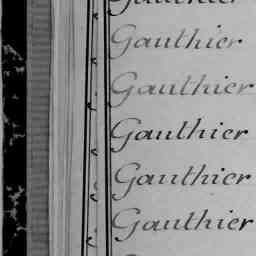 Gauthier
Gauthier
Gauthier
Gauthier
Gauthier
Gauthier